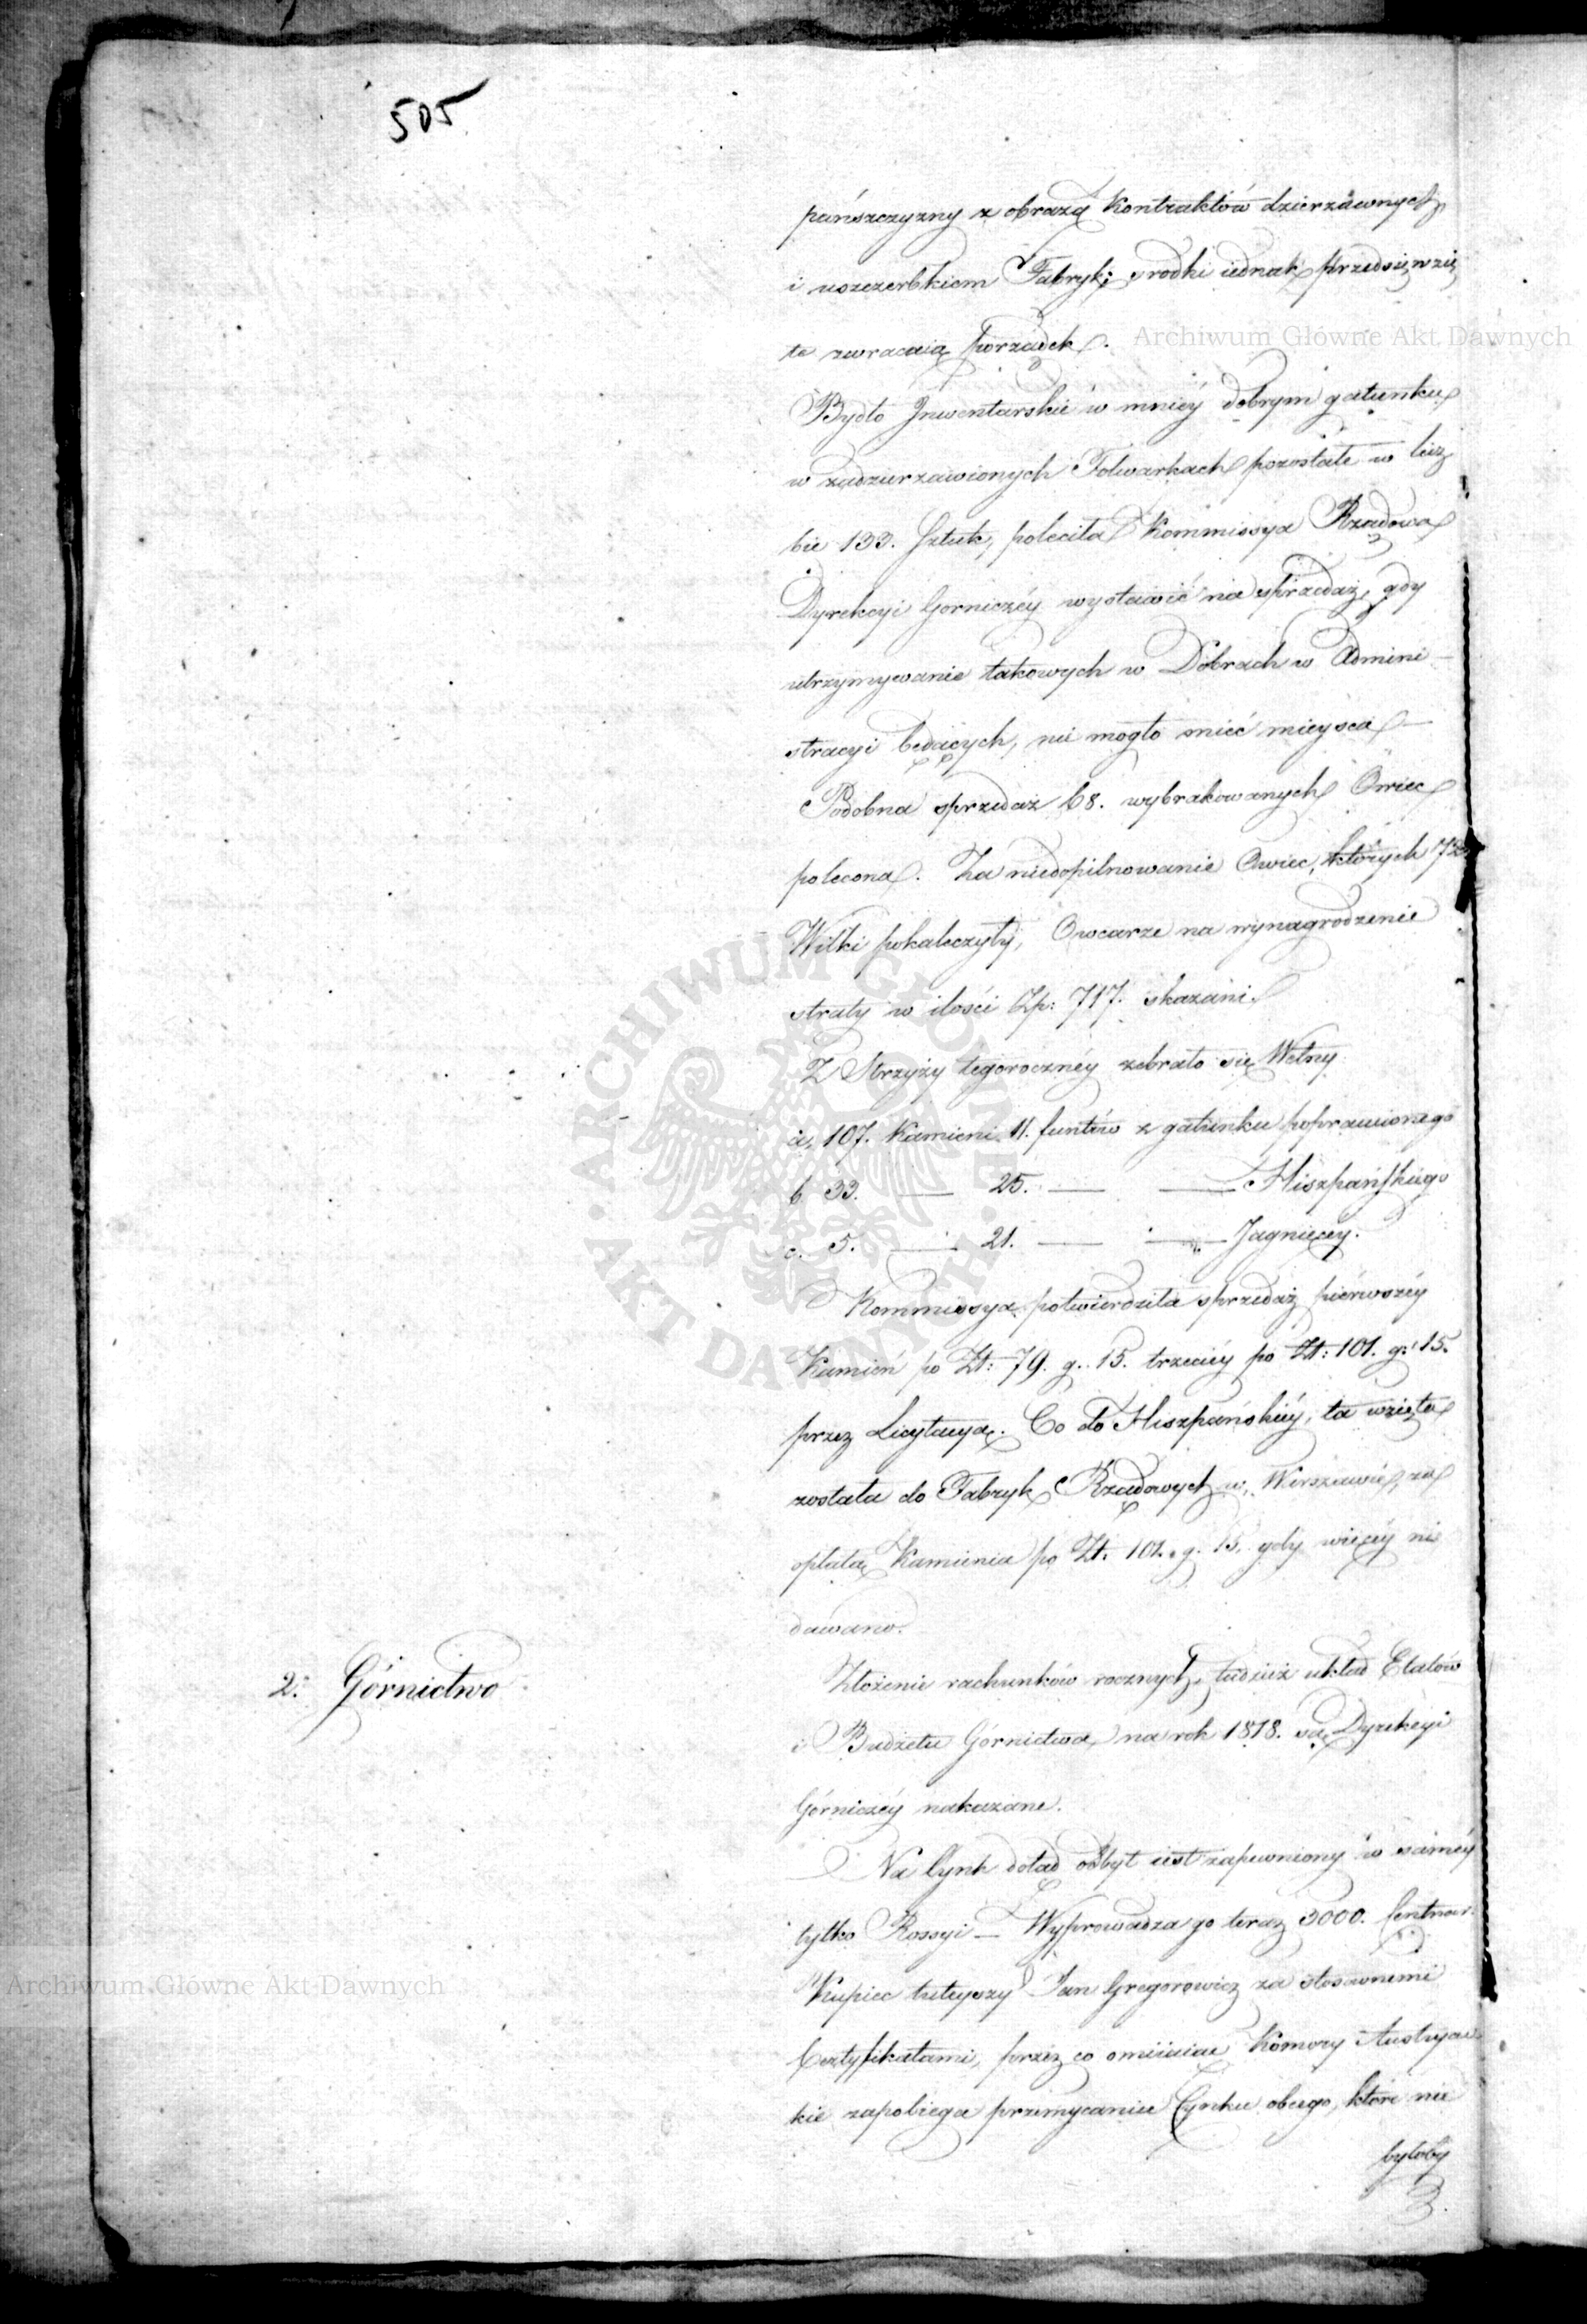 505
pańszczyzny z obrazą Kontraktów dzierżawnych,
i uszczerbkiem Fabryk; srodki iednak przedsięwzię
te zwracaią porządek.
Bydło Inwentarskie w mniéy dobrym gatunku
w zadzierzawionych Folwarkach pozostałe w licz
bie 133. Sztuk, poleciła Kommissya Rządowa
Dyrekcyi Gorniczéy wystawić na sprzedaż, gdy
utrzymywanie takowych w Dobrach w Admini
stracyi będących, nie mogło mieć mieysca —
Podobna sprzedaż 68. wybrakowanych Owiec
polecona. Za niedopilnowanie Owiec, których 72
Wilki pokaleczyły, Owcarze na wynagrodzenie
straty w ilości Zp: 717. skazani.
Z Strzyży tegorocznéy zebrało się Wełny
a, 107. Kamieni 11. funtów z gatunku poprawionego
b 33. — 25. — — Hiszpańskiego
c. 5. — 21. — — Jagnięcey.
Kommissya potwierdziła sprzedaż piérwszéy
Kamień po Zł: 79. g. 15. trzeciéy po Zł: 101. g: 15.
przez Licytacyą. Co do Hiszpańskiéy, ta wzięta
została do Fabryk Rządowych w Warszawie, za
opłatą Kamienia po Zł. 102. g. 15. gdy więcéy nie
dawano.
2. Górnictwo
Złożenie rachunków rocznych, tudzież układ Etatów
i Budżetu Górnictwa, na rok 1818. są Dyrekcyi
Górniczéy nakazane.
Na Cynk dotąd odbyt iest zapewniony w saméy
tylko Rossyi — Wyprowadza go teraz 3000. Centnar.
Kupiec tuteyszy Jan Gregorowicz za stosownemi
Certyfikatami, przez co omiiaiąc Komory Austryac
kie zapobiega przemycaniu Cynku obcego, które nie
byłoby
Archiwum Główne Akt Dawnych
ARCHIWUM GŁÓWNE AKT DAWNYCH
Archiwum Główne Akt Dawnych